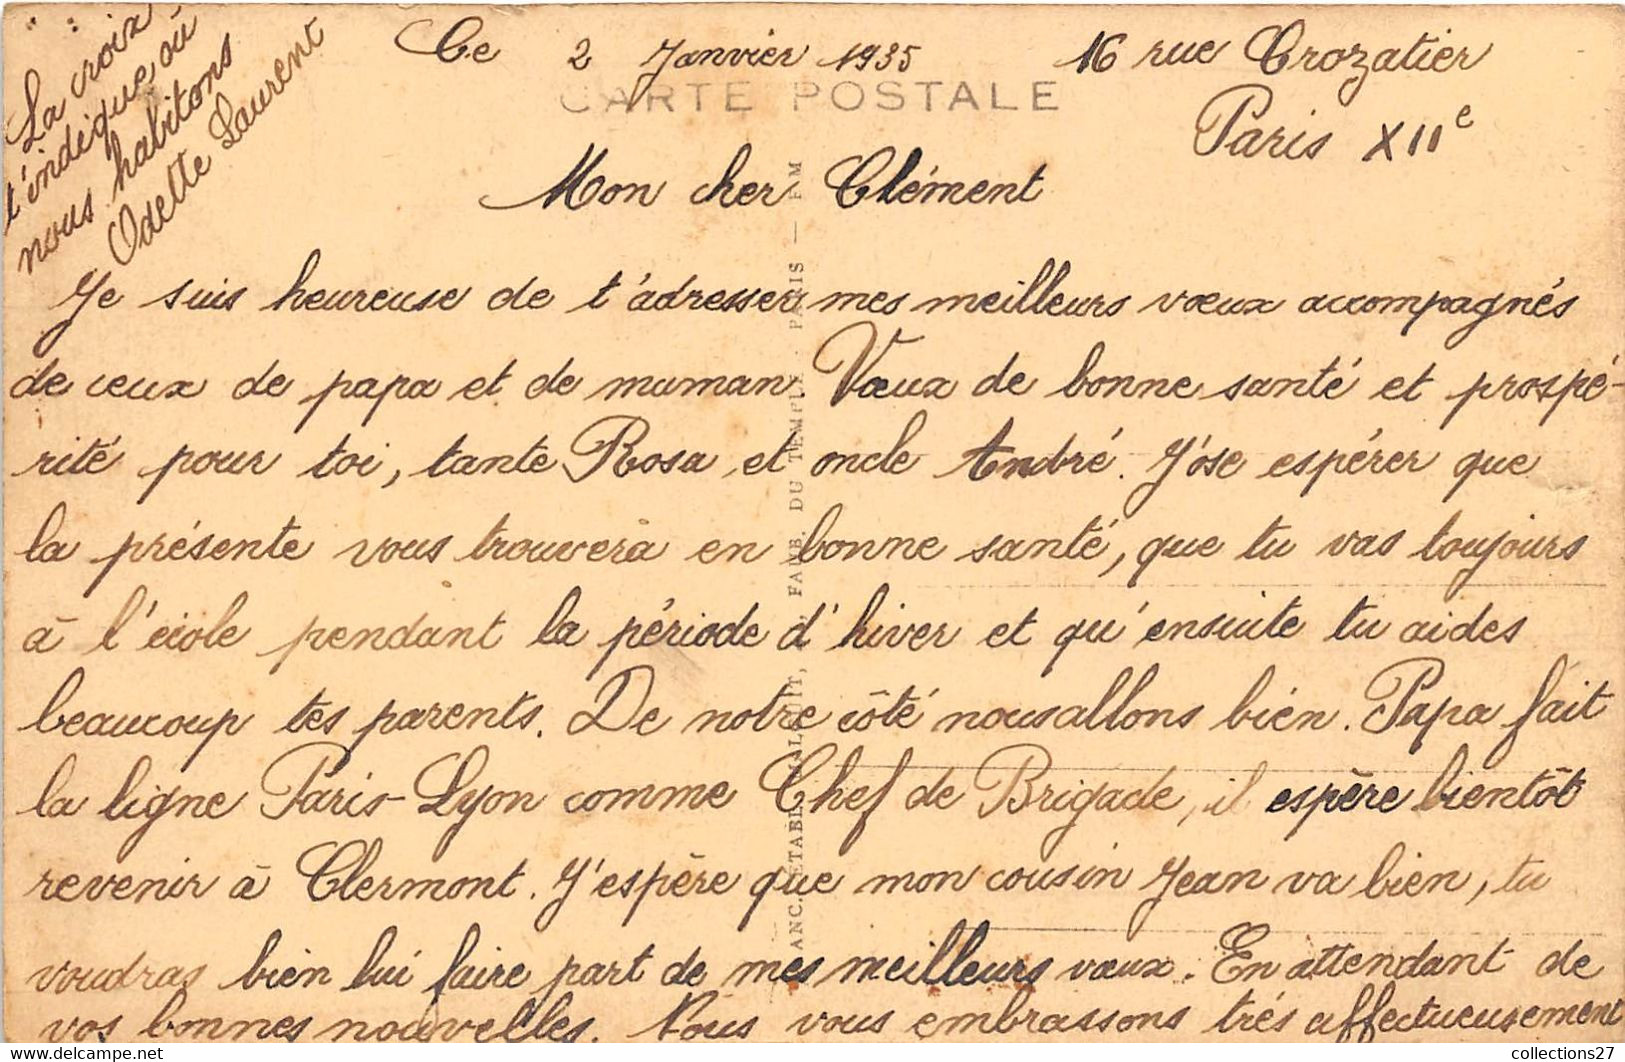 La croix
t'indique où
nous habitons
Odette Laurent
Ce 2 Janvier 1935
16 rue Crozatier
CARTE POSTALE
Paris XIIe
Mon cher Clément
Je suis heureuse de t'adresser mes meilleurs vœux accompagnés
de ceux de papa et de maman. Vœux de bonne santé et prospé-
rité pour toi, tante Rosa et oncle André. J'ose espérer que
la présente vous trouvera en bonne santé, que tu vas toujours
à l'école pendant la période d'hiver et qu'ensuite tu aides
beaucoup tes parents. De notre côté nous allons bien. Papa fait
la ligne Paris-Lyon comme Chef de Brigade, il espère bientôt
revenir à Clermont. J'espère que mon cousin Jean va bien, tu
voudras bien lui faire part de mes meilleurs vœux. En attendant de
vos bonnes nouvelles. Nous vous embrassons très affectueusement
ANC. ETABL. MALCUIT, FAUB. DU TEMPLE PARIS —
collections27